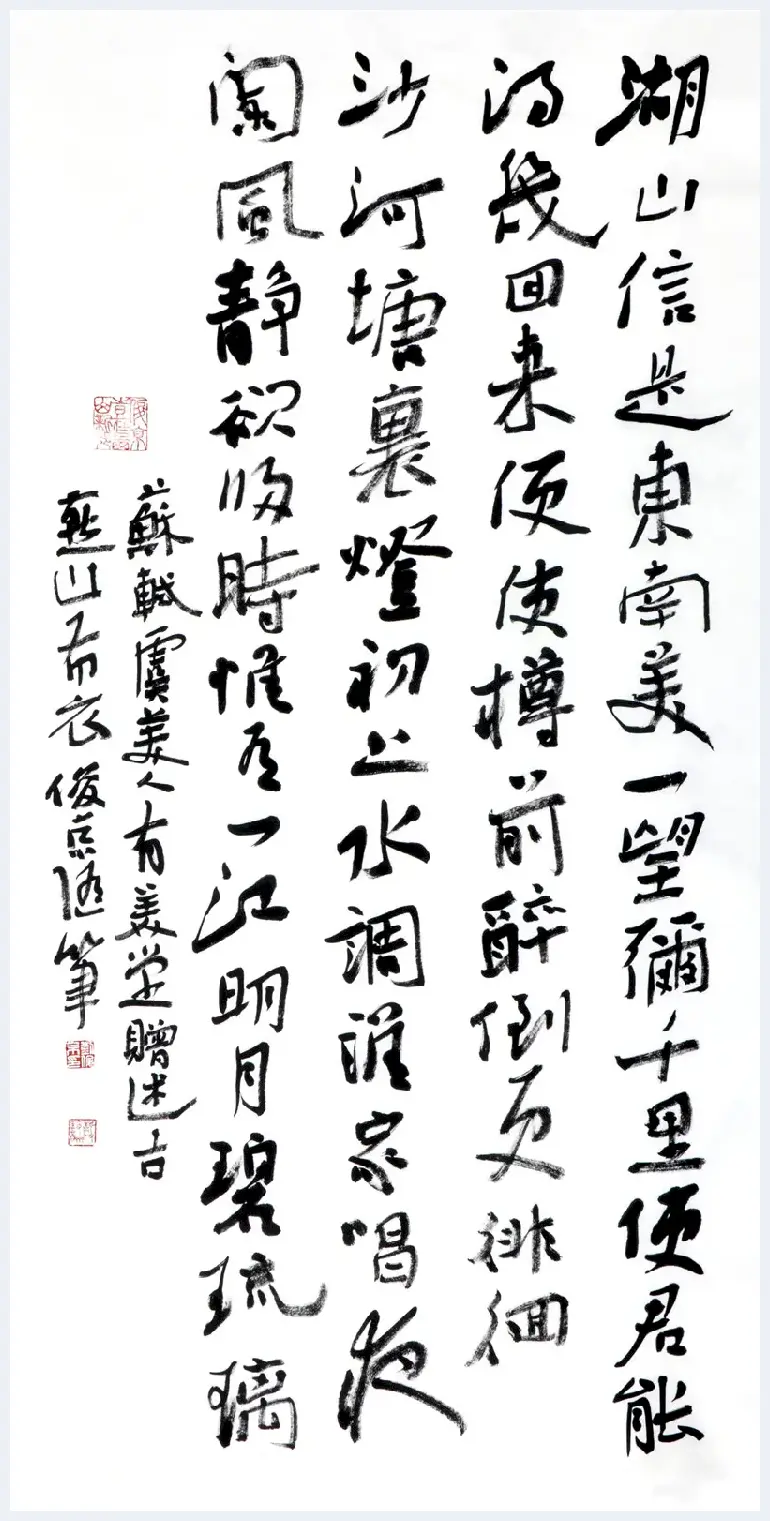 湖山信是東南美一望彌千里使君能
得幾回来便使樽前醉倒更徘徊
沙河塘裏燈初上水調誰家唱夜
闌風静欲歸時惟有一江明月碧琉璃
蘇軾虞美人有美堂贈述古
燕山布衣俊京随筆